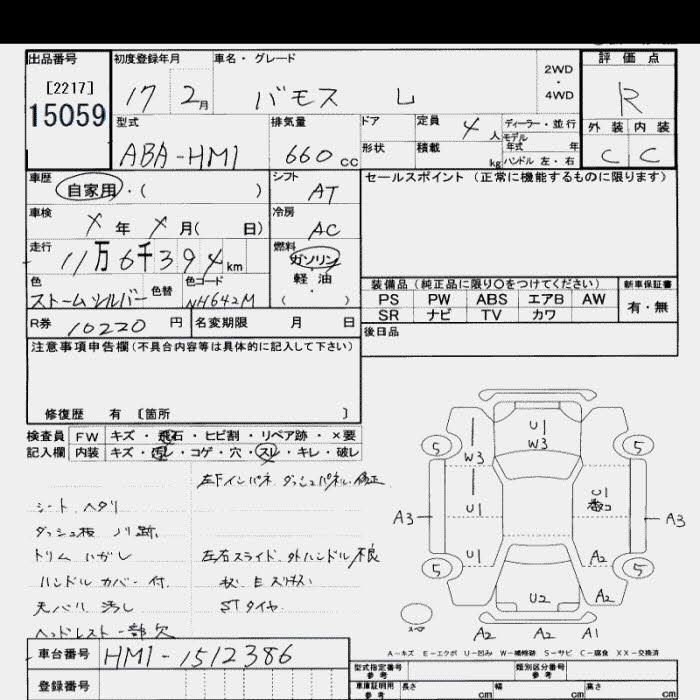 出品番号 初度登録年月 車名・グレード 2WD・4WD 評価点
[2217] 15059 17 2月 バモス L R
型式 排気量 ドア 定員 4人 ディーラー・並行 外装 内装
モデル年式 年
ABA-HM1 660cc 形状 積載 kg ハンドル 左・右 C C
車歴 自家用・( ) シフト AT セールスポイント (正常に機能するものに限ります)
車検 年 月( 日) 冷房 AC
走行 11万6千394km 燃料 ガソリン 軽油 ( ・ )
色 ストームシルバー 色替 色コード NH642M
装備品 (純正品に限り○をつけてください) 新車保証書
PS PW ABS エアB AW 有・無
SR ナビ TV カワ
R券 10220円 名変期限 月 日 後日品
注意事項申告欄 (不具合内容等は具体的に記入して下さい)
修復歴 有 [箇所 ]
検査員 FW キズ・飛石・ヒビ割・リペア跡・×要
記入欄 内装 キズ・汚レ・コゲ・穴・スレ・キレ・破レ
左Fインパネ ダッシュパネル 修正
シート ヘタリ
ダッシュ板 ノリ跡
トリム ハガレ 左右スライド 外ハンドル不良
ハンドルカバー付
天バリ 汚レ STタイヤ
ヘッドレスト一部欠
U1
W3
W3
5 5
U1 U1
A3 A3
U1 A2
5 5
U2 A2
スペア
A2 A2 A1
A-キズ E-エクボ U-凹み W-補修跡 S-サビ C-腐食 XX-交換済
車台番号 HM1-1512386
型式指定番号 参考 類別区分番号 参考
登録番号 車庫証明用 参考 長さ cm 幅 cm 高さ cm